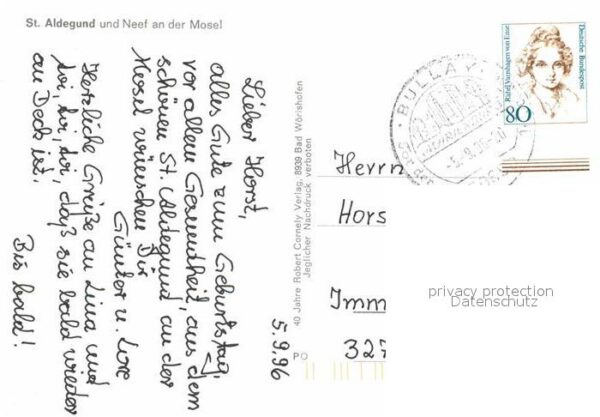 St. Aldegund und Neef an der Mosel
5.9.96
Lieber Horst,
alles Gute zum Geburtstag,
vor allem Gesundheit, aus dem
schönen St. Aldegund an der
Mosel wünschen Dir
Günter u. Lore
Herzliche Grüße an Lina und
toi, toi, toi, daß sie bald wieder
an Deck ist.
Bis bald!
40 Jahre Robert Cornely Verlag, 8939 Bad Wörishofen
Jeglicher Nachdruck verboten
BULLAY
-5.-9.96
Deutsche Bundespost
Rahel Varnhagen von Ense
80
Herrn
Hors
Imm
327
PO
privacy protection
Datenschutz